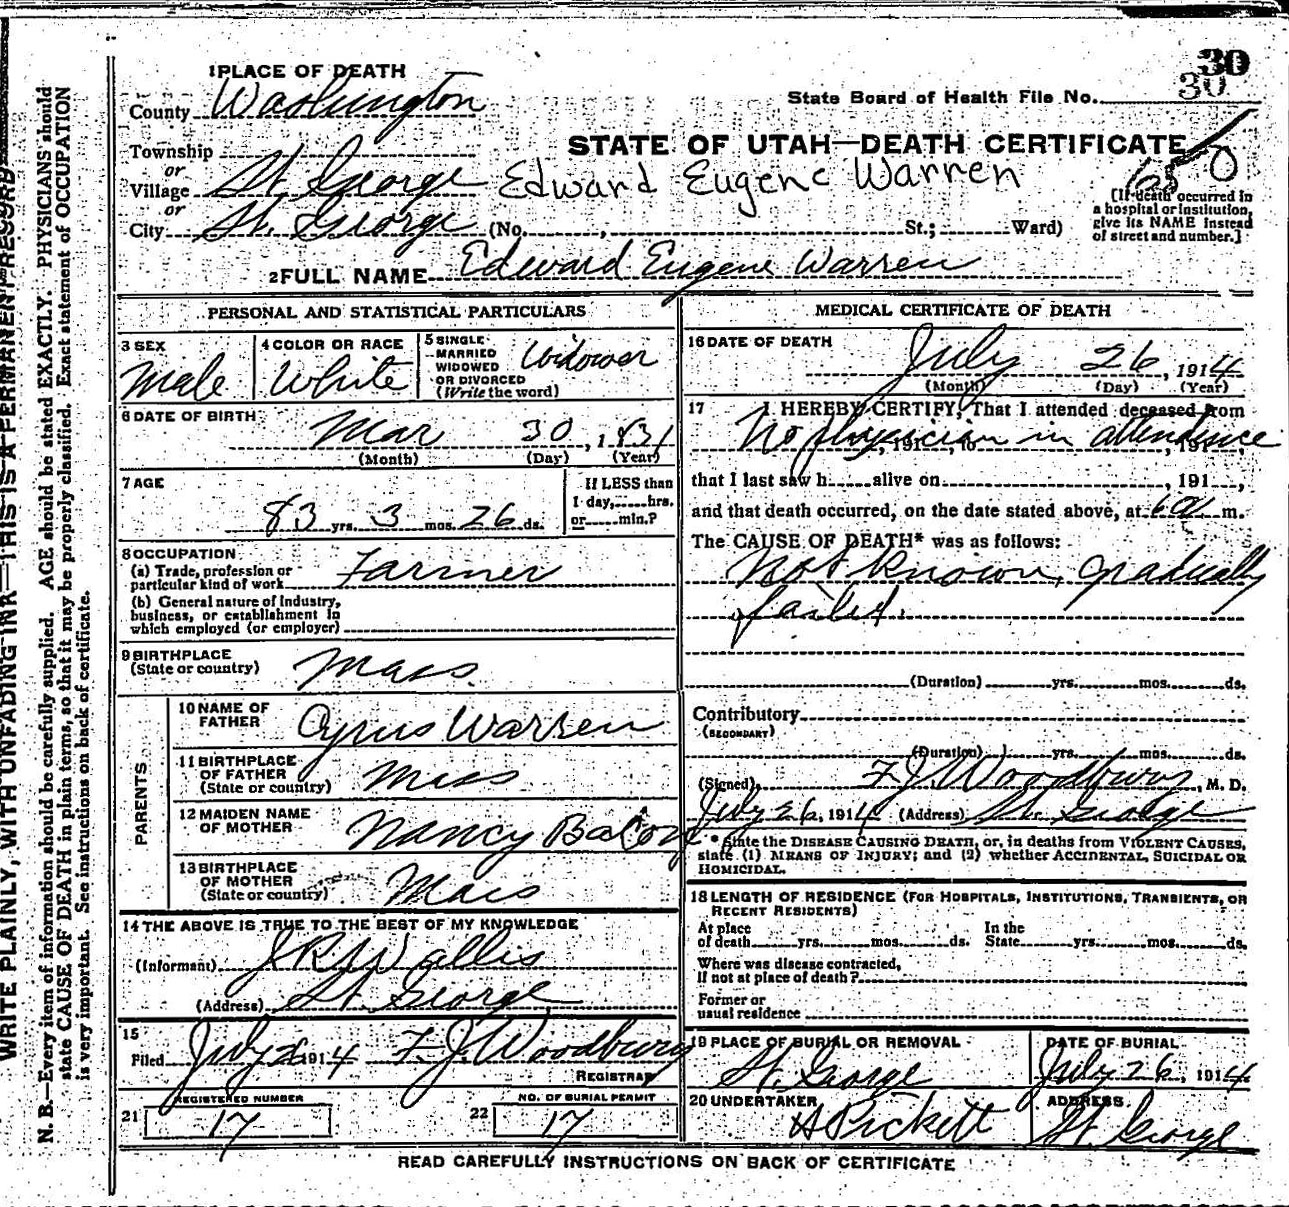 30
30
State Board of Health File No.
1 PLACE OF DEATH
County Washington
STATE OF UTAH—DEATH CERTIFICATE
Township
or
Village St. George
Edward Eugene Warren
65 0
or
City St. George (No. , St.; Ward)
[If death occurred in
a hospital or institution,
give its NAME instead
of street and number.]
2 FULL NAME Edward Eugene Warren
PERSONAL AND STATISTICAL PARTICULARS
3 SEX
Male
4 COLOR OR RACE
White
5 SINGLE
MARRIED
WIDOWED
OR DIVORCED
(Write the word)
Widower
6 DATE OF BIRTH
Mar 30, 1831
(Month) (Day) (Year)
7 AGE
83 yrs. 3 mos. 26 ds.
If LESS than
1 day, hrs.
or min.?
8 OCCUPATION
(a) Trade, profession or
particular kind of work Farmer
(b) General nature of industry,
business, or establishment in
which employed (or employer)
9 BIRTHPLACE
(State or country) Mass.
PARENTS
10 NAME OF
FATHER Cyrus Warren
11 BIRTHPLACE
OF FATHER
(State or country) Mass
12 MAIDEN NAME
OF MOTHER Nancy Bacon
13 BIRTHPLACE
OF MOTHER
(State or country) Mass
14 THE ABOVE IS TRUE TO THE BEST OF MY KNOWLEDGE
(Informant) Wallis
(Address) St. George
15
Filed July 26 1914 F. J. Woodbury
REGISTRAR
REGISTERED NUMBER
21 17
NO. OF BURIAL PERMIT
22 17
MEDICAL CERTIFICATE OF DEATH
16 DATE OF DEATH
July 26, 1914
(Month) (Day) (Year)
17 I HEREBY CERTIFY, That I attended deceased from
No physician in attendance
, 191 , to , 191 ,
that I last saw h alive on , 191 ,
and that death occurred, on the date stated above, at 6 a m.
The CAUSE OF DEATH* was as follows:
Not known, gradually
failed.
(Duration) yrs. mos. ds.
Contributory
(SECONDARY)
(Duration) yrs. mos. ds.
(Signed) F. J. Woodbury, M. D.
July 26, 1914 (Address) St. George
* State the DISEASE CAUSING DEATH, or, in deaths from VIOLENT CAUSES,
state (1) MEANS OF INJURY; and (2) whether ACCIDENTAL, SUICIDAL OR
HOMICIDAL.
18 LENGTH OF RESIDENCE (FOR HOSPITALS, INSTITUTIONS, TRANSIENTS, OR
RECENT RESIDENTS)
At place
of death yrs. mos. ds.
In the
State yrs. mos. ds.
Where was disease contracted,
If not at place of death?
Former or
usual residence
19 PLACE OF BURIAL OR REMOVAL
St. George
DATE OF BURIAL
July 26, 1914
20 UNDERTAKER
Pickett
ADDRESS
St. George
READ CAREFULLY INSTRUCTIONS ON BACK OF CERTIFICATE
WRITE PLAINLY, WITH UNFADING INK—THIS IS A PERMANENT RECORD
N. B.—Every item of information should be carefully supplied. AGE should be stated EXACTLY. PHYSICIANS should
state CAUSE OF DEATH in plain terms, so that it may be properly classified. Exact statement of OCCUPATION
is very important. See instructions on back of certificate.